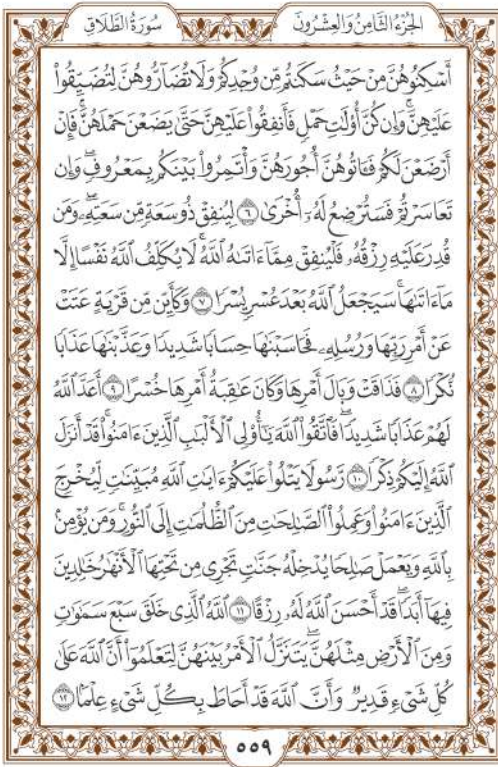 الجُزْءُ الثَّامِنُ وَالعِشْرُونَ سُورَةُ الطَّلَاقِ
أَسْكِنُوهُنَّ مِنْ حَيْثُ سَكَنتُم مِّن وُجْدِكُمْ وَلَا تُضَآرُّوهُنَّ لِتُضَيِّقُوا۟
عَلَيْهِنَّ ۚ وَإِن كُنَّ أُو۟لَـٰتِ حَمْلٍ فَأَنفِقُوا۟ عَلَيْهِنَّ حَتَّىٰ يَضَعْنَ حَمْلَهُنَّ ۚ فَإِنْ
أَرْضَعْنَ لَكُمْ فَـَٔاتُوهُنَّ أُجُورَهُنَّ وَأْتَمِرُوا۟ بَيْنَكُم بِمَعْرُوفٍ ۖ وَإِن
تَعَاسَرْتُمْ فَسَتُرْضِعُ لَهُۥٓ أُخْرَىٰ ٦ لِيُنفِقْ ذُو سَعَةٍ مِّن سَعَتِهِۦ ۖ وَمَن
قُدِرَ عَلَيْهِ رِزْقُهُۥ فَلْيُنفِقْ مِمَّآ ءَاتَىٰهُ ٱللَّهُ ۚ لَا يُكَلِّفُ ٱللَّهُ نَفْسًا إِلَّا
مَآ ءَاتَىٰهَا ۚ سَيَجْعَلُ ٱللَّهُ بَعْدَ عُسْرٍ يُسْرًا ٧ وَكَأَيِّن مِّن قَرْيَةٍ عَتَتْ
عَنْ أَمْرِ رَبِّهَا وَرُسُلِهِۦ فَحَاسَبْنَـٰهَا حِسَابًا شَدِيدًا وَعَذَّبْنَـٰهَا عَذَابًا
نُّكْرًا ٨ فَذَاقَتْ وَبَالَ أَمْرِهَا وَكَانَ عَـٰقِبَةُ أَمْرِهَا خُسْرًا ٩ أَعَدَّ ٱللَّهُ
لَهُمْ عَذَابًا شَدِيدًا ۖ فَٱتَّقُوا۟ ٱللَّهَ يَـٰٓأُو۟لِى ٱلْأَلْبَـٰبِ ٱلَّذِينَ ءَامَنُوا۟ ۚ قَدْ أَنزَلَ
ٱللَّهُ إِلَيْكُمْ ذِكْرًا ١٠ رَّسُولًا يَتْلُوا۟ عَلَيْكُمْ ءَايَـٰتِ ٱللَّهِ مُبَيِّنَـٰتٍ لِّيُخْرِجَ
ٱلَّذِينَ ءَامَنُوا۟ وَعَمِلُوا۟ ٱلصَّـٰلِحَـٰتِ مِنَ ٱلظُّلُمَـٰتِ إِلَى ٱلنُّورِ ۚ وَمَن يُؤْمِنۢ
بِٱللَّهِ وَيَعْمَلْ صَـٰلِحًا يُدْخِلْهُ جَنَّـٰتٍ تَجْرِى مِن تَحْتِهَا ٱلْأَنْهَـٰرُ خَـٰلِدِينَ
فِيهَآ أَبَدًا ۖ قَدْ أَحْسَنَ ٱللَّهُ لَهُۥ رِزْقًا ١١ ٱللَّهُ ٱلَّذِى خَلَقَ سَبْعَ سَمَـٰوَٰتٍ
وَمِنَ ٱلْأَرْضِ مِثْلَهُنَّ ۖ يَتَنَزَّلُ ٱلْأَمْرُ بَيْنَهُنَّ لِتَعْلَمُوٓا۟ أَنَّ ٱللَّهَ عَلَىٰ
كُلِّ شَىْءٍ قَدِيرٌ وَأَنَّ ٱللَّهَ قَدْ أَحَاطَ بِكُلِّ شَىْءٍ عِلْمًۢا ١٢
٥٥٩